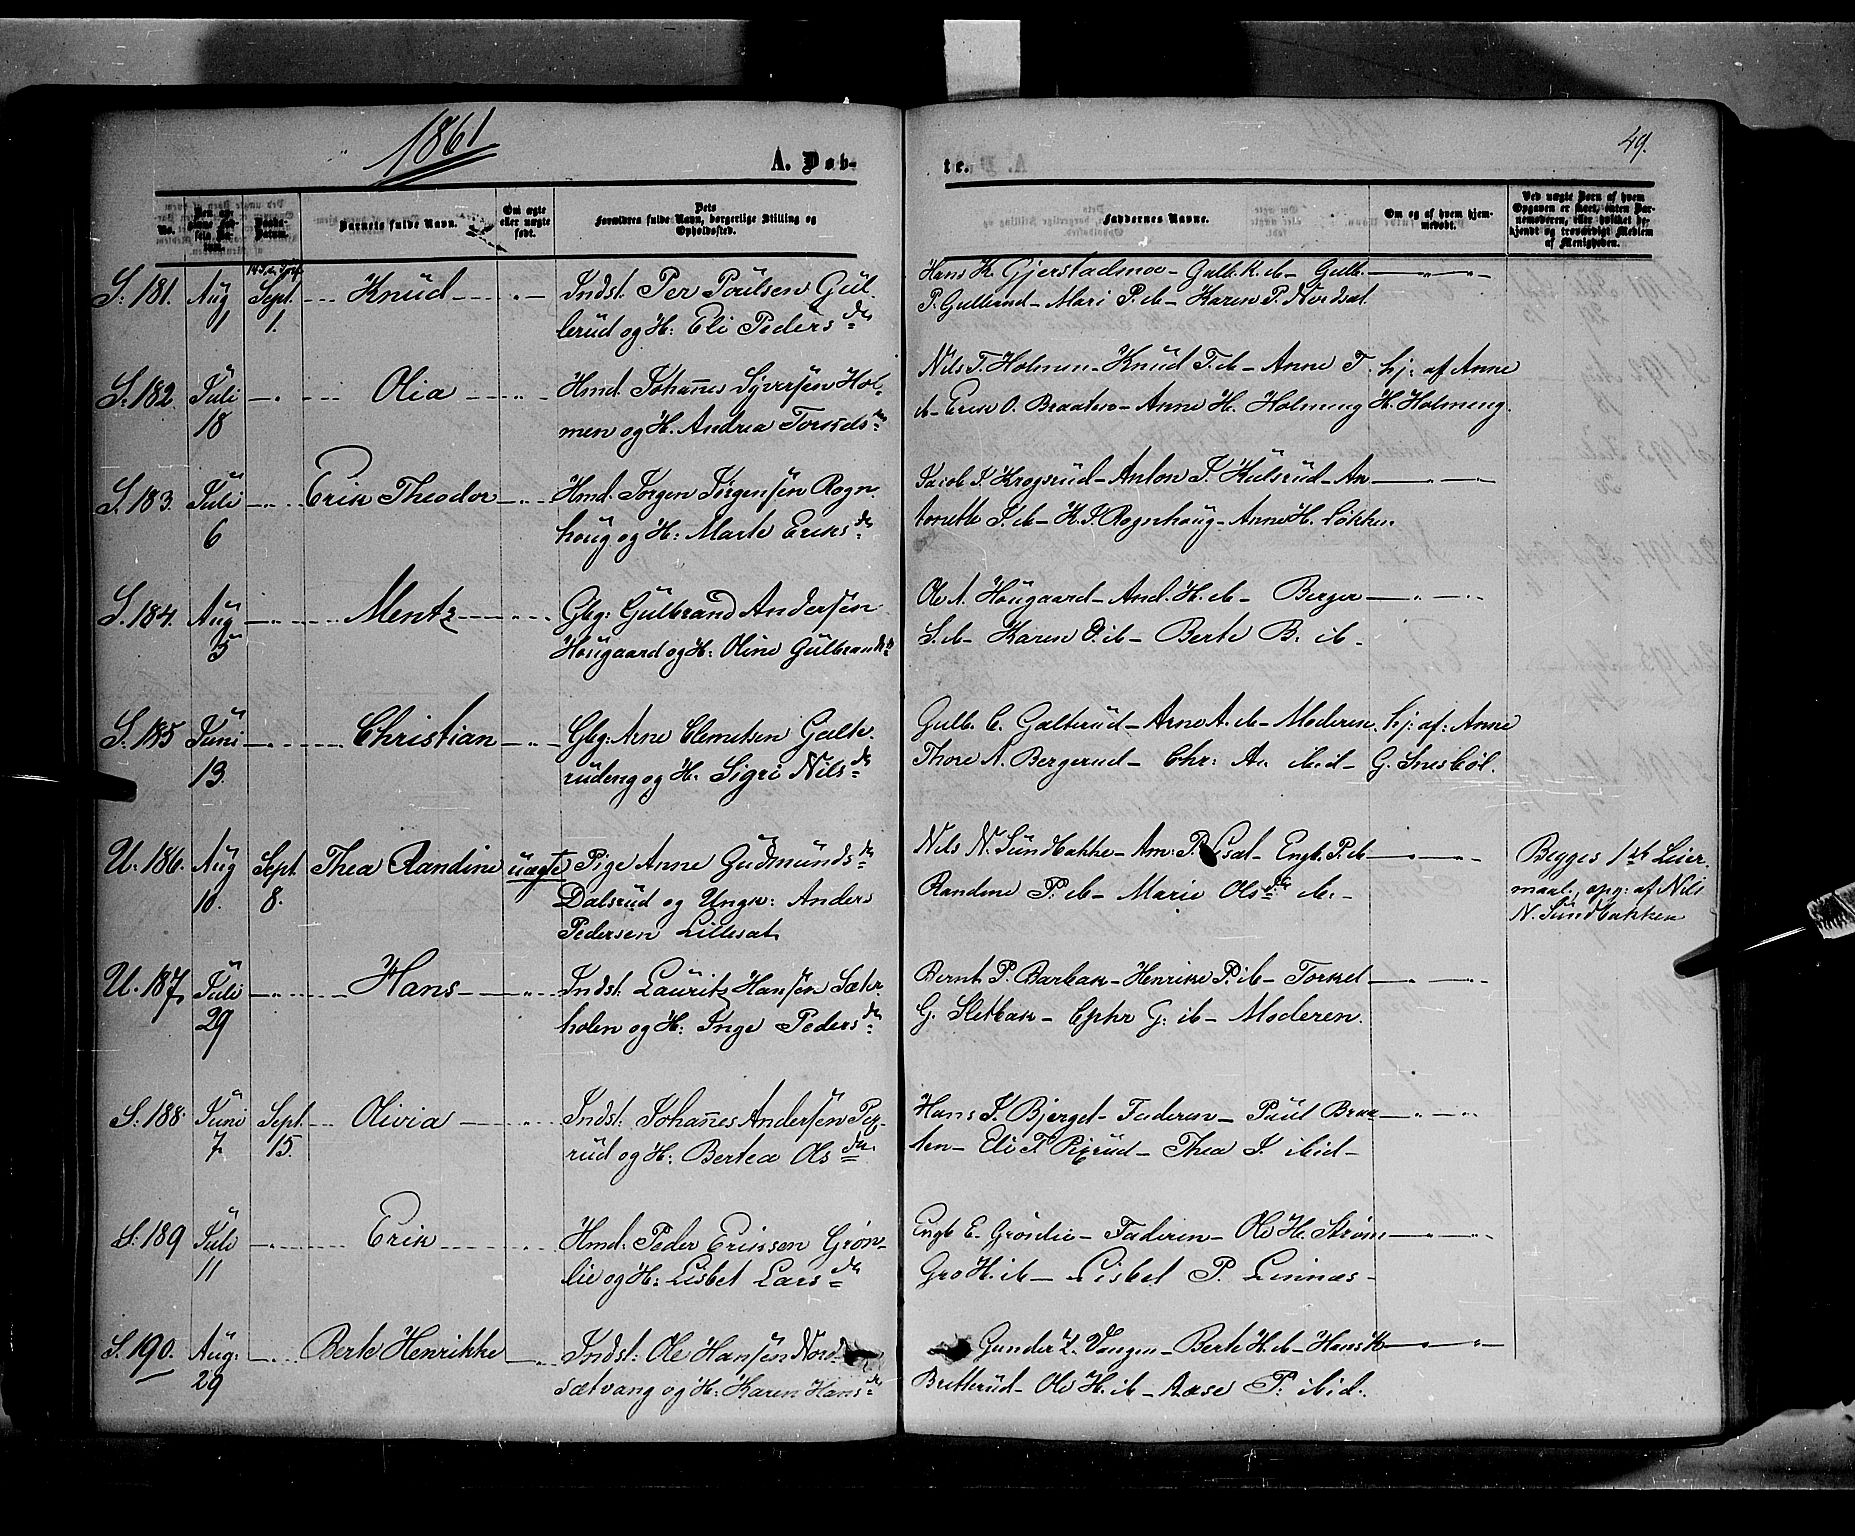 1861
A. Døb-
te.
49.
No.
Barnets fulde Navn.
Om ægte eller uægte født.
Dets Forældres fulde Navn, borgerlige Stilling og Opholdssted.
Faddernes Navne.
Om og af hvem hjemmedøbt.
Ved uægte Børn af hvem Opgaven er skeet, enten Barnemoderen, eller hvilket bekjendt og troværdigt Medlem af Menigheden.
S. 181. Aug 1 Sept. 1. Knud Indst. Per Poulsen Gul-
lerud og H: Eli Pedersdr
Hans K. Gjerstadmoe - Gulb. K. ib - Gulb.
P. Gullerud - Mari P. ib - Karen P. Nordsæt
S. 182. Juli 18 Olia Hmd. Johannes Syversen Hol-
men og H. Andrea Torkelsdr
Nils T. Holmen - Knud T. ib - Anne T. hj: af Anne
ib - Erik O. Braaten - Anne H. Holmeng H. Holmeng.
S. 183. Juli 6 Erik Theodor Hmd. Jørgen Jørgensen Rogn-
houg og H: Marte Eriksdr
Jacob J. Krogsrud - Anton J. Kulsrud - An-
tonette J. ib - H. J. Rognhaug - Anne H. Løkken.
S. 184. Aug 5 Mentz Gbg: Gulbrand Andersen
Hougaard og H: Oline Gulbrandsdr
Ole A. Hougaard - And. H. ib - Berger
S. ib - Karen O. ib - Berte B. ib -
S. 185 Juni 13. Christian Gbg: Arne Clemetsen Galte-
rudeng og H. Sigri Nilsdr
Gulb. C. Galterud - Arne A. ib - Moderen, hj: af: Anne
Thore A. Bergerud - Chr: A. ibid - G. Snesbøl.
U. 186. Aug 10. Sept 8. Thea Randine uægte Pige Anne Gudmundsdr
Dalsrud og Ungk: Anders
Pedersen Lillesæt
Nils N. Sundbakke - Am: P. Lsæt - Engb. P. ib
Randine P. ib - Marie Olsdr ib. -
Begges 1ste Leier-
maal, opg: af Nils
N. Sundbakken
U. 187. Juli 29 Hans Indst. Lauritz Hansen Sæter-
holen og H: Inge Pedersdr
Bernt P. Barbak - Henrikke P. ib - Torkel
G. Sletbak - Ephr G: ib - Moderen.
S. 188. Juni 7 Sept. 15. Olivia Indst. Johannes Andersen Pex-
rud og H: Bertea Olsdr
Hans J. Bjerget - Faderen - Paul Braa-
ten - Eli J. Pexrud - Thea J. ibid -
S. 189 Juli 11 Erik Hmd: Peder Eriksen Grøn-
lie og H: Lisbet Larsdr
Engb E. Grønlie - Faderen - Ole H. Strøm
Gro H. ib - Lisbet P. Linnæs -
S. 190. Aug: 29 Berte Henrikke Indst: Ole Hansen Nord-
sætvang og H: Karen Hansdr
Gunder L. Vangen - Berte H. ib - Hans K
Britterud - Ole H. ib - Aase P: ibid.